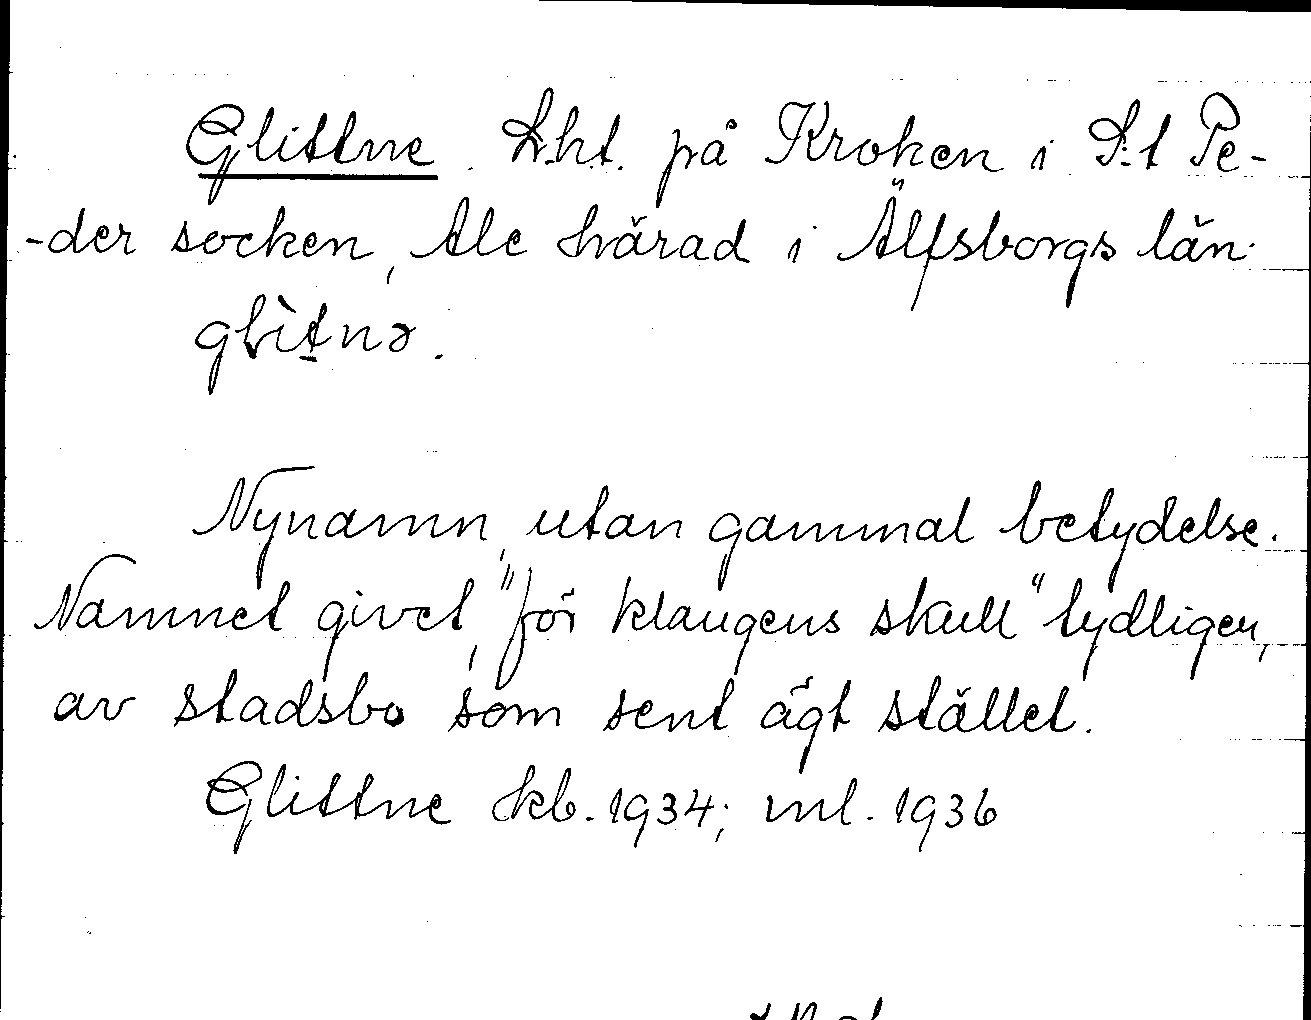 Glittne. Lht. på Kroken i S:t Pe-
-der socken, Ale härad i Älfsborgs län.
glìtnə.
Nynamn, utan gammal betydelse.
Namnet givet, "för klangens skull" tydligen,
av stadsbo som sent ägt stället.
Glittne hkb. 1934; ml. 1936